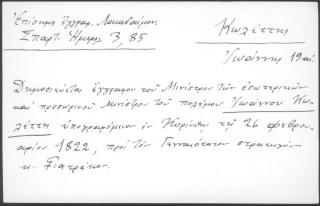 Ἐπίσημα Ἔγγραφ. Λακεδαίμον.
Σπαρτ. Ἡμερολ. 3, 85
Κωλέττης
Ἰωάννης 19 αἰ.
Δημοσιεύεται ἔγγραφον τοῦ Μινίστρου τῶν ἐσωτερικῶν
καὶ προσωρινοῦ Μινίστρου τοῦ πολέμου Ἰωάννου Κω-
λέττη ὑπογραφόμενον ἐν Κορίνθῳ τῇ 26 φεβρου-
αρίου 1822, πρὸς τὸν Γενναιότατον στρατηγὸν
κ. Γιατράκον.